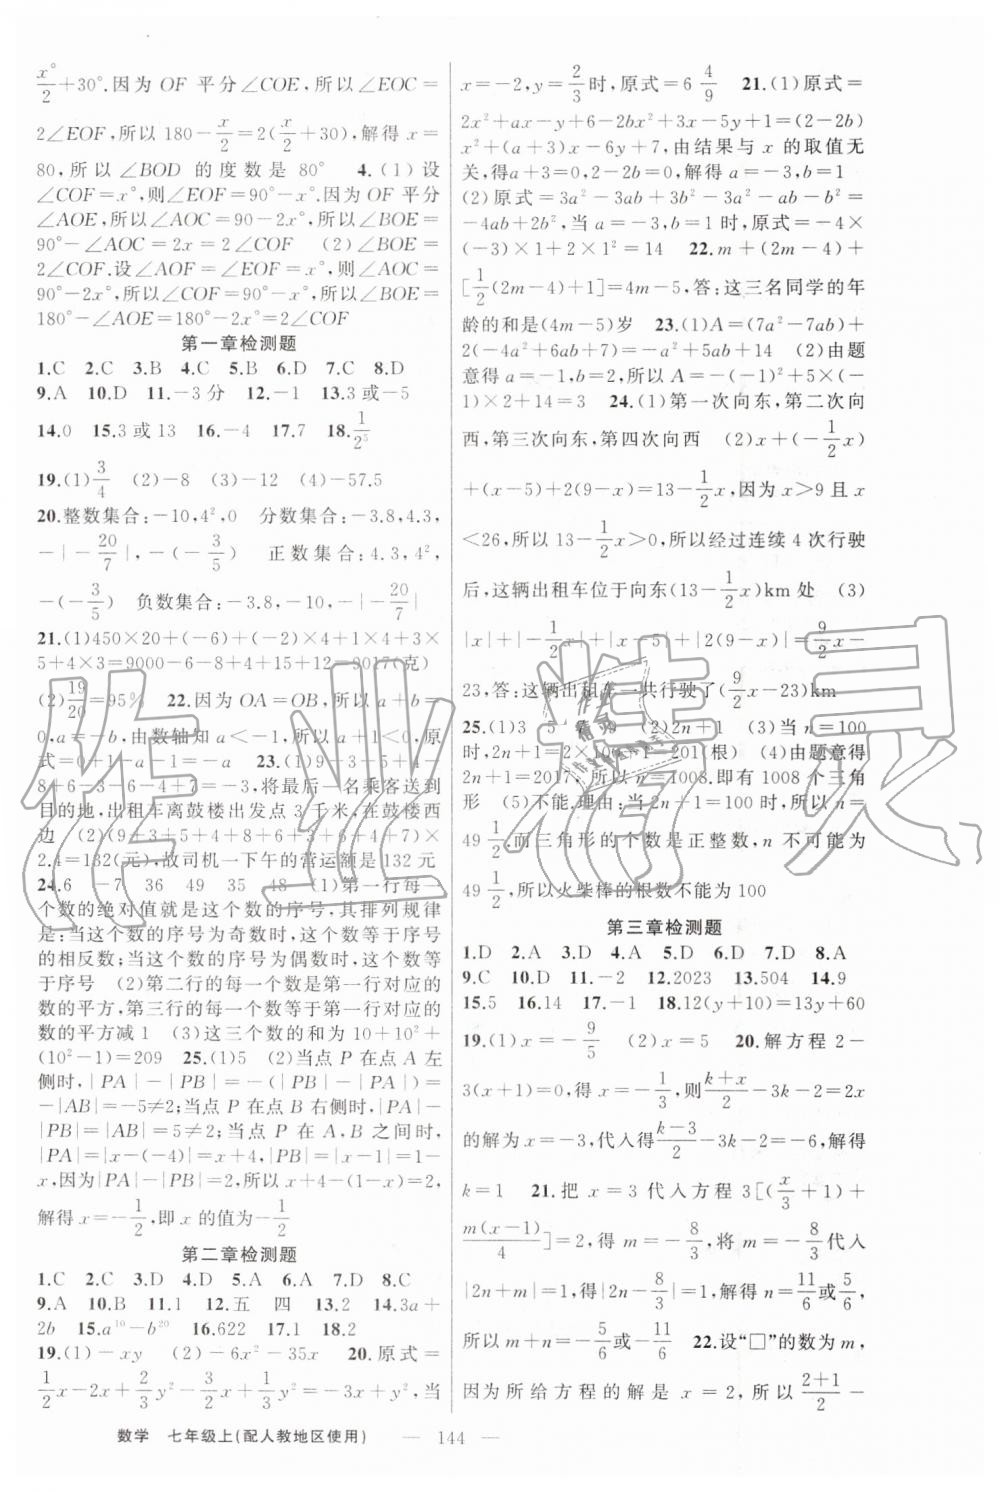 x°/2+30°.因为 OF 平分∠COE,所以∠EOC=
2∠EOF,所以 180-x/2=2(x/2+30),解得 x=
80,所以∠BOD 的度数是 80° 4.(1)设
∠COF=x°,则∠EOF=90°-x°.因为 OF 平分
∠AOE,所以∠AOC=90-2x°.所以∠BOE=
90°-∠AOC=2x=2∠COF (2)∠BOE=
2∠COF.设∠AOF=∠EOF=x°,则∠AOC=
90°-2x°,所以∠COF=90°-x°,所以∠BOE=
180°-∠AOE=180°-2x°=2∠COF
第一章检测题
1.C 2.C 3.B 4.C 5.B 6.D 7.C 8.D
9.A 10.D 11.-3分 12.-1 13.3或-5
14.0 15.3或13 16.-4 17.7 18.1/2⁵
19.(1)3/4 (2)-8 (3)-12 (4)-57.5
20.整数集合:-10,4²,0 分数集合:-3.8,4.3,
-|-20/7|,-(-3/5) 正数集合:4.3,4²,
-(-3/5) 负数集合:-3.8,-10,-|-20/7|
21.(1)450×20+(-6)+(-2)×4+1×4+3×
5+4×3=9000-6-8+4+15+12=9017(克)
(2)19/20=95% 22.因为 OA=OB,所以 a+b=
0,a=-b,由数轴知 a<-1,所以 a+1<0,原
式=0-a-1+1=-a 23.(1)9-3-5+4-
8+6-3-6-4+7=-3,将最后一名乘客送到
目的地,出租车离鼓楼出发点 3 千米,在鼓楼西
边 (2)(9+3+5+4+8+6+3+6+4+7)×
2.4=132(元),故司机一下午的营运额是 132 元
24.6 -7 36 49 35 48 (1)第一行每一
个数的绝对值就是这个数的序号,其排列规律
是:当这个数的序号为奇数时,这个数等于序号
的相反数;当这个数的序号为偶数时,这个数等
于序号 (2)第二行的每一个数是第一行对应的
数的平方,第三行的每一个数等于第一行对应的
数的平方减 1 (3)这三个数的和为 10+10²+
(10²-1)=209 25.(1)5 (2)当点 P 在点 A 左
侧时,|PA|-|PB|=-(|PB|-|PA|)=
-|AB|=-5≠2;当点 P 在点 B 右侧时,|PA|-
|PB|=|AB|=5≠2;当点 P 在 A,B 之间时,
|PA|=|x-(-4)|=x+4,|PB|=|x-1|=1-x,
因为|PA|-|PB|=2,所以 x+4-(1-x)=2,
解得 x=-1/2,即 x 的值为-1/2
第二章检测题
1.C 2.C 3.D 4.D 5.A 6.A 7.D 8.C
9.A 10.B 11.1 12.五 四 13.2 14.3a+
2b 15.a¹⁰-b²⁰ 16.622 17.1 18.2
19.(1)-xy (2)-6x²-35x 20.原式=
1/2x-2x+2/3y²-3/2x+1/3y²=-3x+y²,当
x=-2,y=2/3时,原式=6 4/9 21.(1)原式=
2x²+ax-y+6-2bx²+3x-5y+1=(2-2b)
x²+(a+3)x-6y+7,由结果与 x 的取值无
关,得 a+3=0,2-2b=0,解得 a=-3,b=1
(2)原式=3a²-3ab+3b²-3a²-ab-b²=
-4ab+2b²,当 a=-3,b=1 时,原式=-4×
(-3)×1+2×1²=14 22.m+(2m-4)+
[1/2(2m-4)+1]=4m-5,答:这三名同学的年
龄的和是(4m-5)岁 23.(1)A=(7a²-7ab)+
2(-4a²+6ab+7)=-a²+5ab+14 (2)由题
意得 a=-1,b=2,所以 A=-(-1)²+5×(-
1)×2+14=3 24.(1)第一次向东,第二次向
西,第三次向东,第四次向西 (2)x+(-1/2x)
+(x-5)+2(9-x)=13-1/2x,因为 x>9 且 x
<26,所以 13-1/2x>0,所以经过连续 4 次行驶
后,这辆出租车位于向东(13-1/2x)km 处 (3)
|x|+|-1/2x|+|x-5|+|2(9-x)|=9/2x-
23,答:这辆出租车一共行驶了(9/2x-23)km
25.(1)3 5 7 9 (2)2n+1 (3)当 n=100
时,2n+1=2×100+1=201(根) (4)由题意得
2n+1=2017,所以 n=1008.即有 1008 个三角
形 (5)不能.理由:当 2n+1=100 时,所以 n=
49 1/2,而三角形的个数是正整数,n 不可能为
49 1/2,所以火柴棒的根数不能为 100
第三章检测题
1.D 2.A 3.D 4.A 5.D 6.D 7.D 8.A
9.C 10.D 11.-2 12.2023 13.504 14.9
15.5 16.14 17.-1 18.12(y+10)=13y+60
19.(1)x=-9/5 (2)x=5 20.解方程 2-
3(x+1)=0,得 x=-1/3,则(k+x)/2-3k-2=2x
的解为 x=-3,代入得(k-3)/2-3k-2=-6,解得
k=1 21.把 x=3 代入方程 3[(x/3+1)+
m(x-1)/4]=2,得 m=-8/3,将 m=-8/3代入
|2n+m|=1,得|2n-8/3|=1,解得 n=11/6或5/6,
所以 m+n=-5/6或-11/6 22.设“□”的数为 m,
因为所给方程的解是 x=2,所以(2+1)/2-
数学 七年级上(配人教地区使用) — 144 —
作业精灵